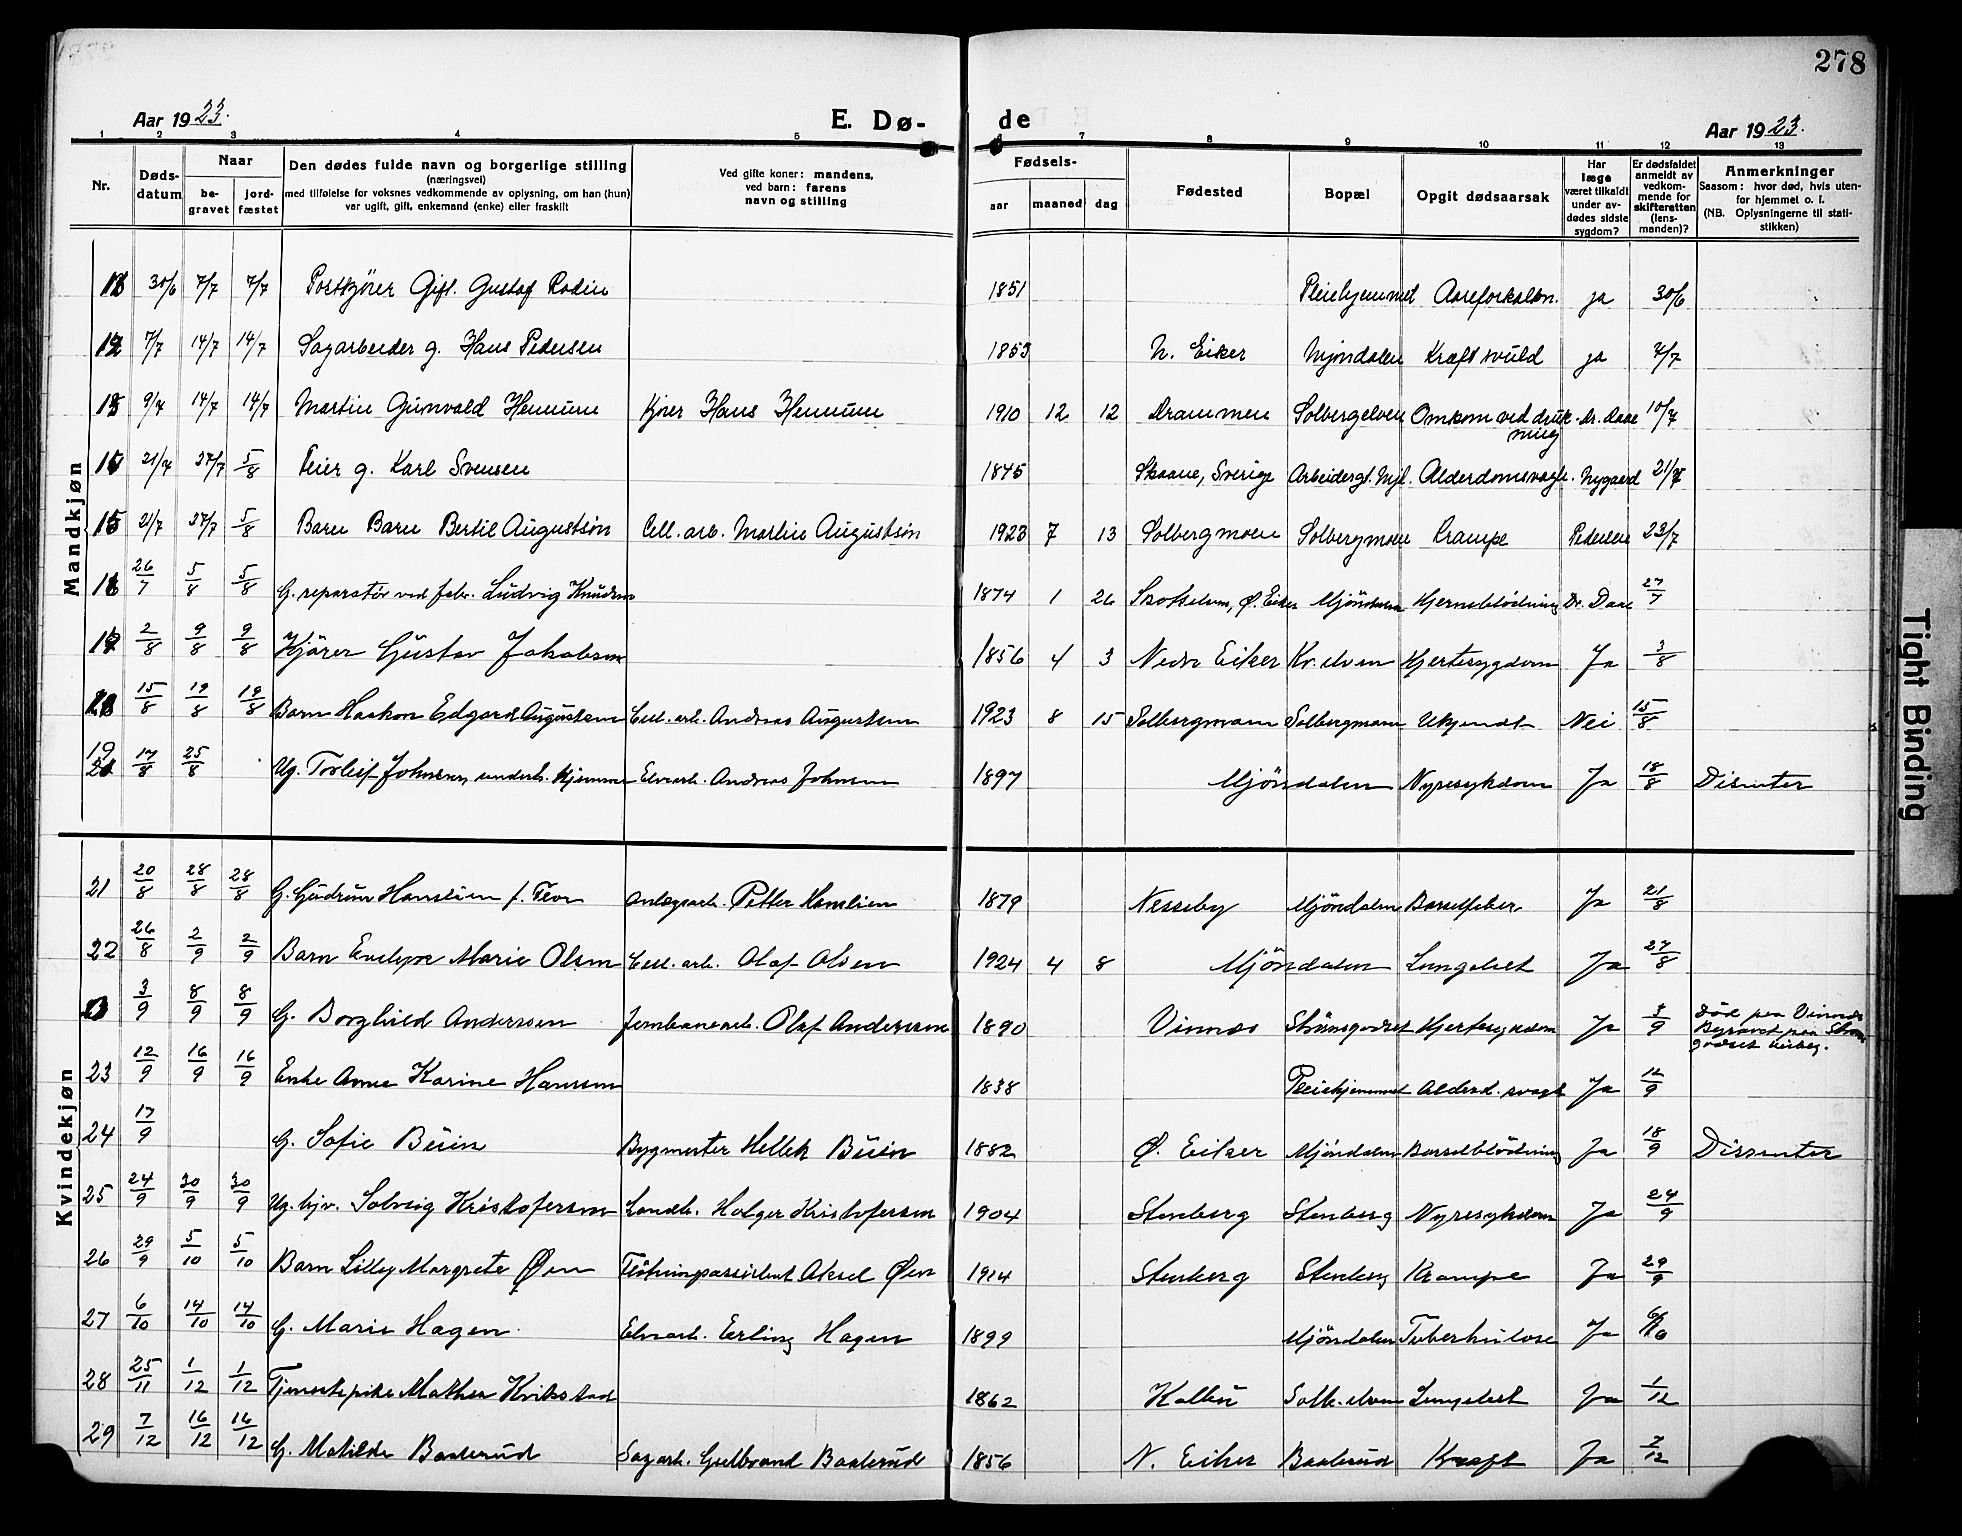 278
Aar 1923. E. Dø- de Aar 1923.
1 2 3 4 5 6 7 8 9 10 11 12 13
Nr. Døds-datum Naar be-gravet jord-fæstet Den dødes fulde navn og borgerlige stilling (næringsvei) med tilføielse for voksnes vedkommende av oplysning, om han (hun) var ugift, gift, enkemand (enke) eller fraskilt Ved gifte koner: mandens, ved barn: farens navn og stilling Fødsels- aar maaned dag Fødested Bopæl Opgit dødsaarsak Har læge været tilkaldt under av-dødes sidste sygdom? Er dødsfaldet anmeldt av vedkom-mende for skifteretten (lens-manden)? Anmerkninger Saasom: hvor død, hvis uten-for hjemmet o. l. (NB. Oplysningerne til stati-stikken)
Mandkjøn
30/6 7/7 7/7 Postkjører Gift. Gustaf Rodin 1851 Pleiehjemmet Aareforkalkn. ja 30/6
7/7 14/7 14/7 Sagarbeider g. Hans Pedersen 1853 N. Eiker Mjøndalen Kræft svuld ja 7/7
9/7 14/7 14/7 Martin Gunvald Hennum Kjører Hans Hennum 1910 12 12 Drammen Solbergelven Omkom ved druk-ning Dr. Daae 10/7
21/7 27/7 5/8 Feier g. Karl Svensen 1845 Skaane, Sverige Arbeidergt. Mjl. Alderdomsvagh. Nygaard 21/7
15 21/7 27/7 5/8 Barn Barn Bertil Augustson Cell. arb. Martin Augustson 1923 7 13 Solbergmoen Solbergmoen Krampe Pedersen 23/7
16 26/7 5/8 5/8 G. reparatør ved fabr. Ludvig Knudsen 1874 1 26 Skotselven, Ø. Eiker Mjöndalen Hjerneblödning Dr. Daae 27/7
2/8 9/8 9/8 Kjörer Gustav Jakobsen 1856 4 3 Nedre Eiker Kr. elven Hjertesygdom Ja 3/8
15/8 19/8 19/8 Barn Haakon Edgard Augustsen Cell. arb. Andreas Augustsen 1923 8 15 Solbergmoen Solbergmoen Ukjendt Nei 15/8
19 17/8 25/8 Ug. Torleif Johnsen, underh. hjemme Elvearb. Andreas Johnsen 1897 Mjöndalen Nyresykdom Ja 18/8 Disenter
Kvindekjøn
21 20/8 28/8 28/8 G. Gudrun Hanslien f. Anlegsarb. Petter Hanslien 1879 Nesseby Mjöndalen Barselfeber Ja 21/8
22 26/8 2/9 2/9 Barn Evelyn Marie Olsen Cell. arb. Olaf Olsen 1924 4 8 Mjöndalen Lungebet Ja 27/8
3/9 8/9 8/9 G. Borghild Anderssen Jernbanearb. Olaf Anderssen 1890 Vinnes Strömsgodset Hjertesykdom Ja 4/9 Död paa Vinnes Begravet paa Ströms godset kirkeg.
23 12/9 16/9 16/9 Enke Anne Karine Hansen 1838 Pleiehjemmet Alderd. svagh. Ja 12/9
24 17/9 G. Sofie Buin Bygmester Hellek Buin 1882 Ø. Eiker Mjöndalen Barselblödning Ja 18/9 Dissenter
25 24/9 30/9 30/9 Ug. hjv. Solveig Kristofersen Landh. Holger Kristofersen 1904 Stenberg Stenberg Nyresykdom Ja 24/9
26 29/9 5/10 5/10 Barn Lilly Margrete Øen Flötningsassistent Aksel Øen 1914 Stenberg Stenberg Krampe Ja 29/9
27 6/10 14/10 14/10 G. Marie Hagen Elvearb. Erling Hagen 1899 Mjöndalen Tuberkulose Ja 6/10
28 25/11 1/12 1/12 Tjenestepike Mathea Kvikstad 1862 Kolbu Solb. elven Lungebet Ja 1/12
29 7/12 16/12 16/12 G. Matilde Baaserud Sagarb. Gulbrand Baaserud 1856 N. Eiker Baaserud Kræft Ja 7/12
Tight Binding